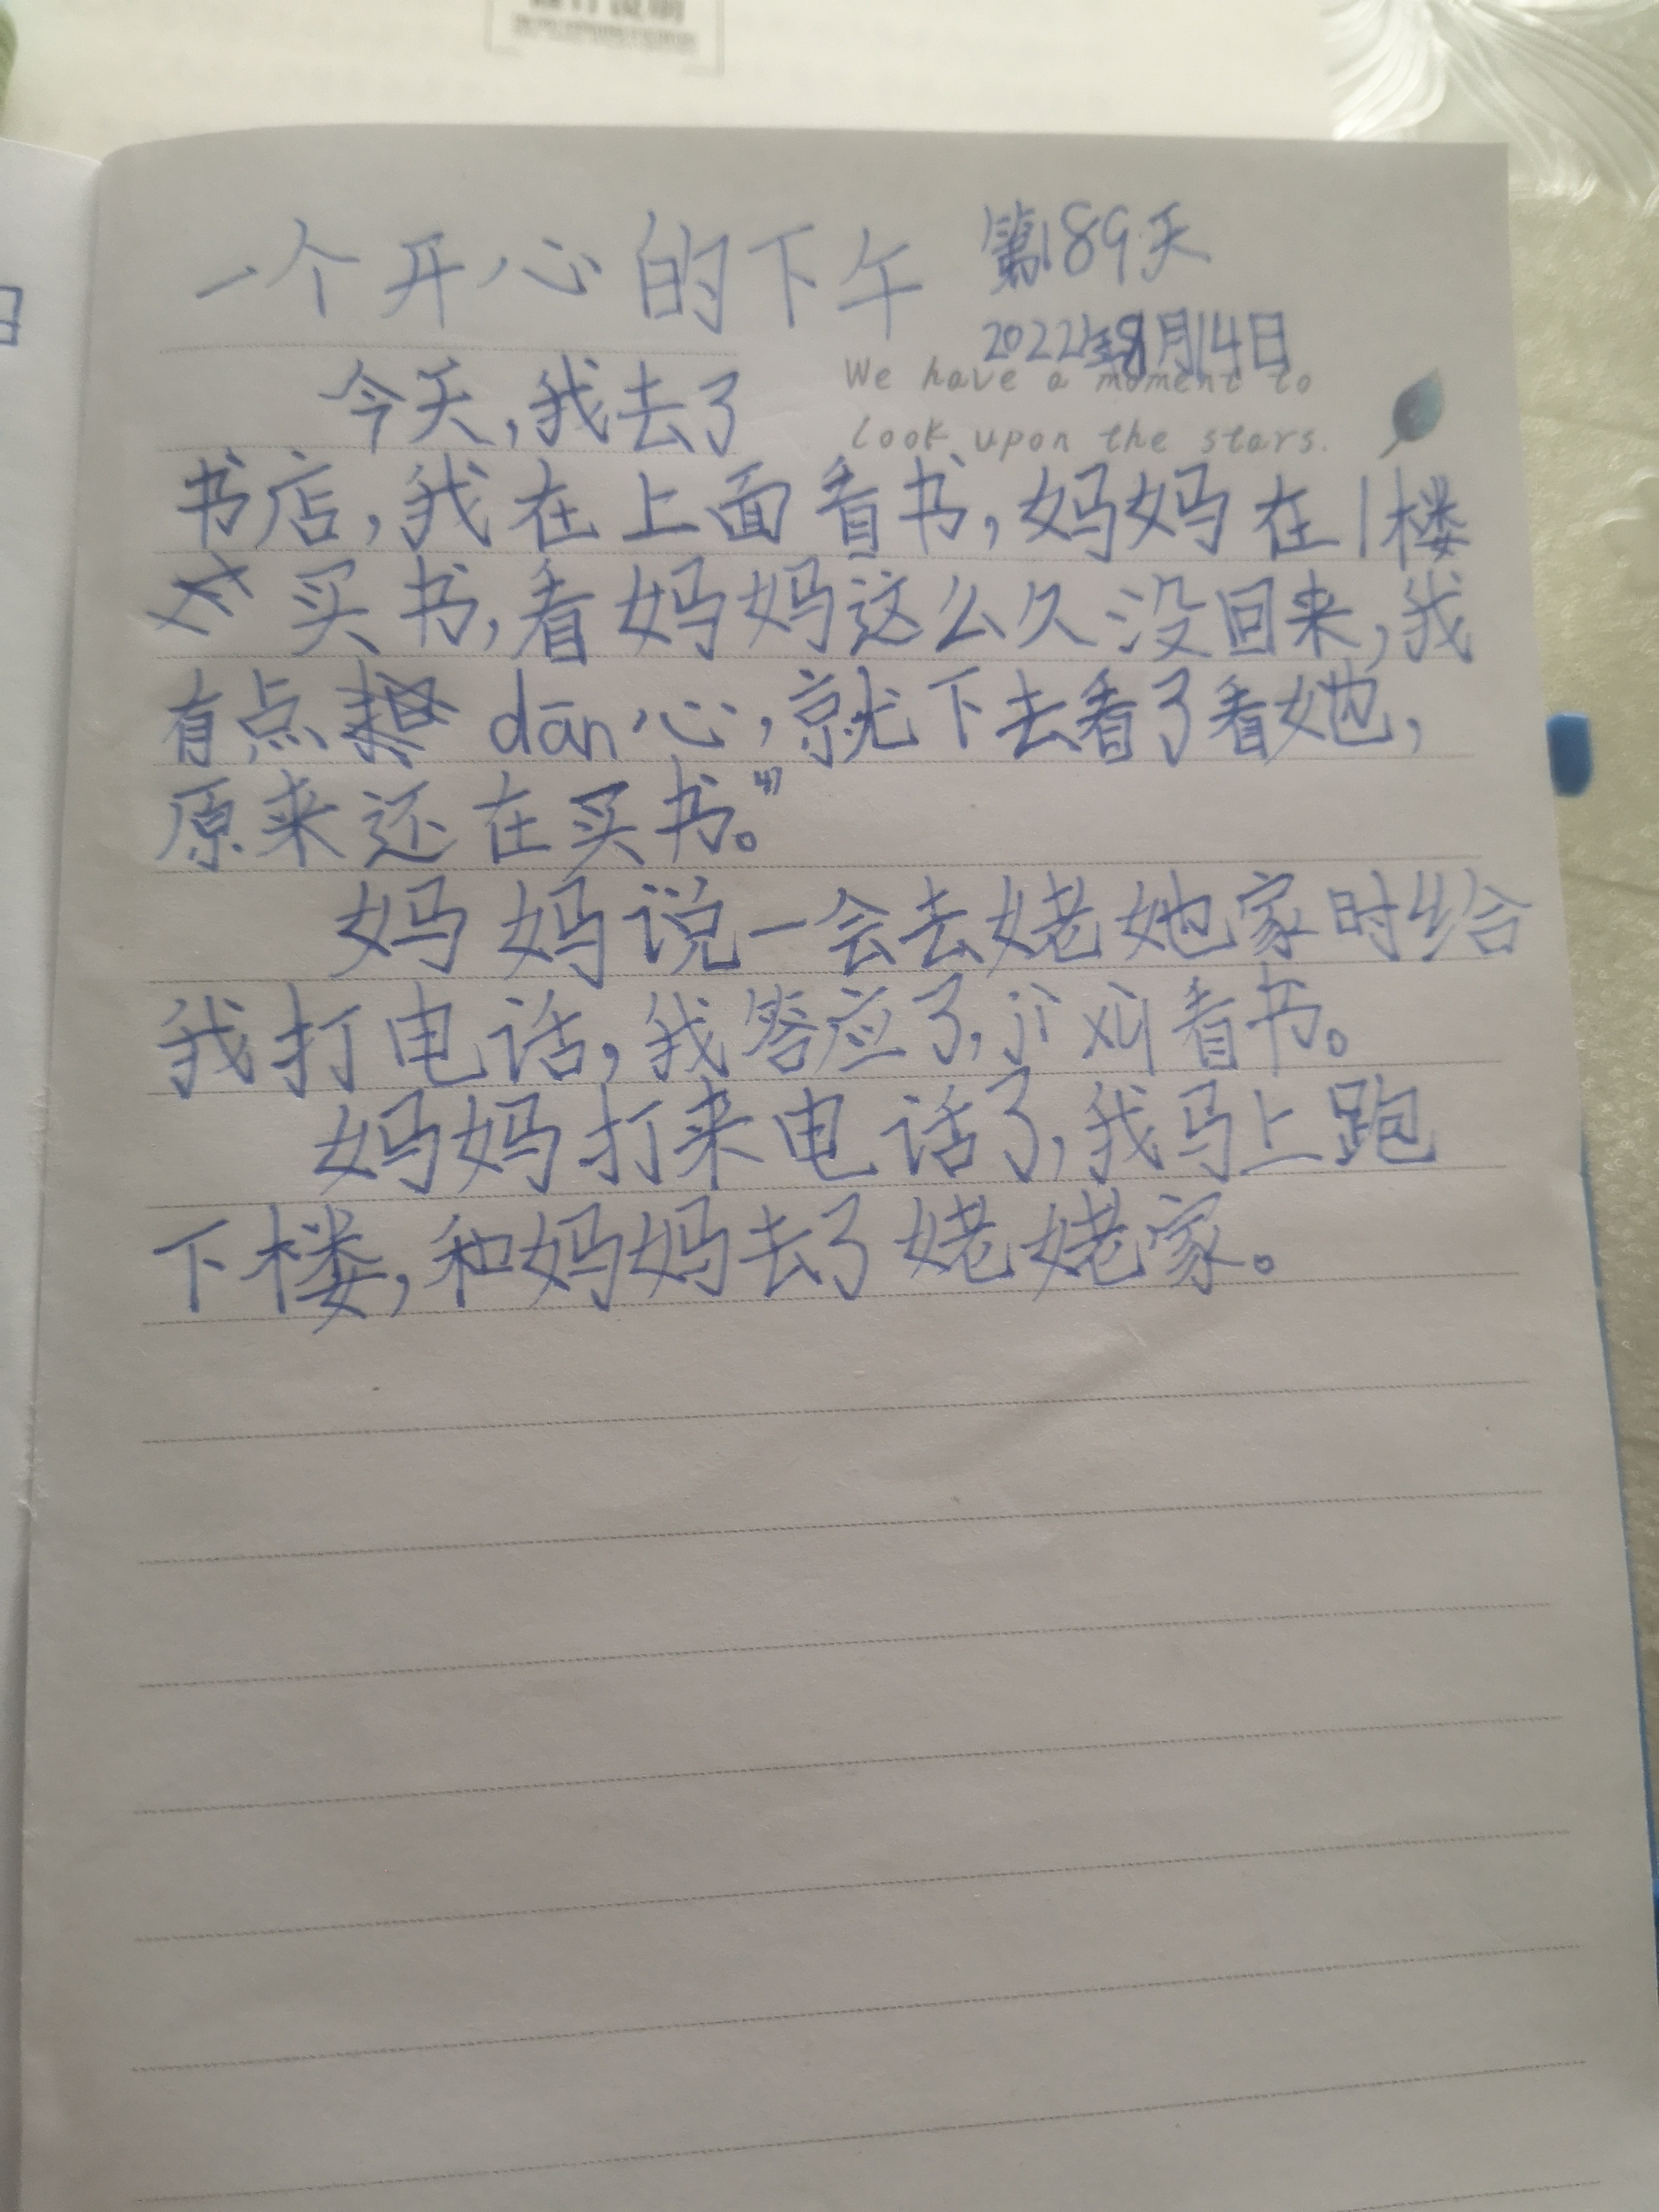 一个开心的下午
第189天
2022年8月14日
We have a moment to
look upon the stars.
今天,我去了
书店,我在上面看书,妈妈在1楼
买书,看妈妈这么久没回来,我
有点 dān心,就下去看了看她,
原来还在买书。”
妈妈说一会去姥她家时给
我打电话,我答应了,看书。
妈妈打来电话了,我马上跑
下楼,和妈妈去了姥姥家。